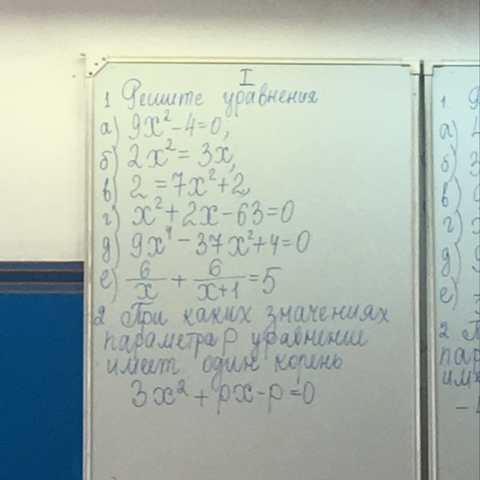 I
1 Решите уравнения
а) 9x²-4=0;
б) 2x²=3x;
в) 2=7x²+2,
г) x²+2x-63=0
д) 9x⁴-37x²+4=0
е) 6/x + 6/(x+1) = 5
2 При каких значениях
параметра p уравнение
имеет один корень
3x²+px-p=0
1.
а)
б)
в)
г)
д)
е)
2
пар
име